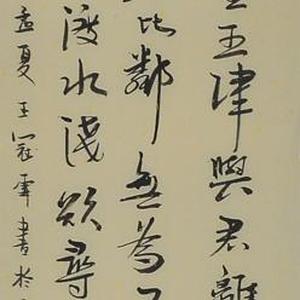 五津與君離
比鄰無為
水淺欲尋
孟夏王冠軍書於